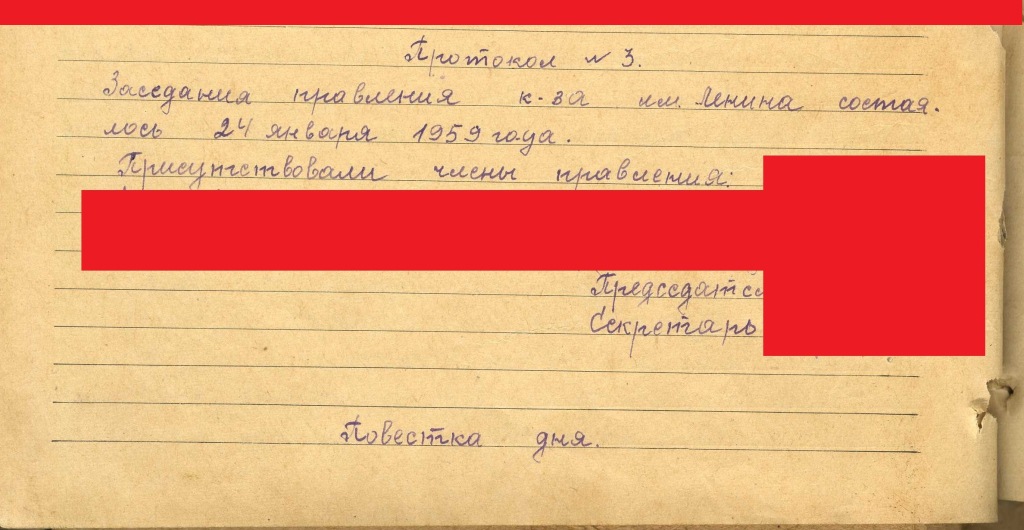 Протокол № 3.
Заседания правления к-за им. Ленина состоя-
лось 24 января 1959 года.
Присутствовали члены правления:
Председате
Секретарь
Повестка дня.